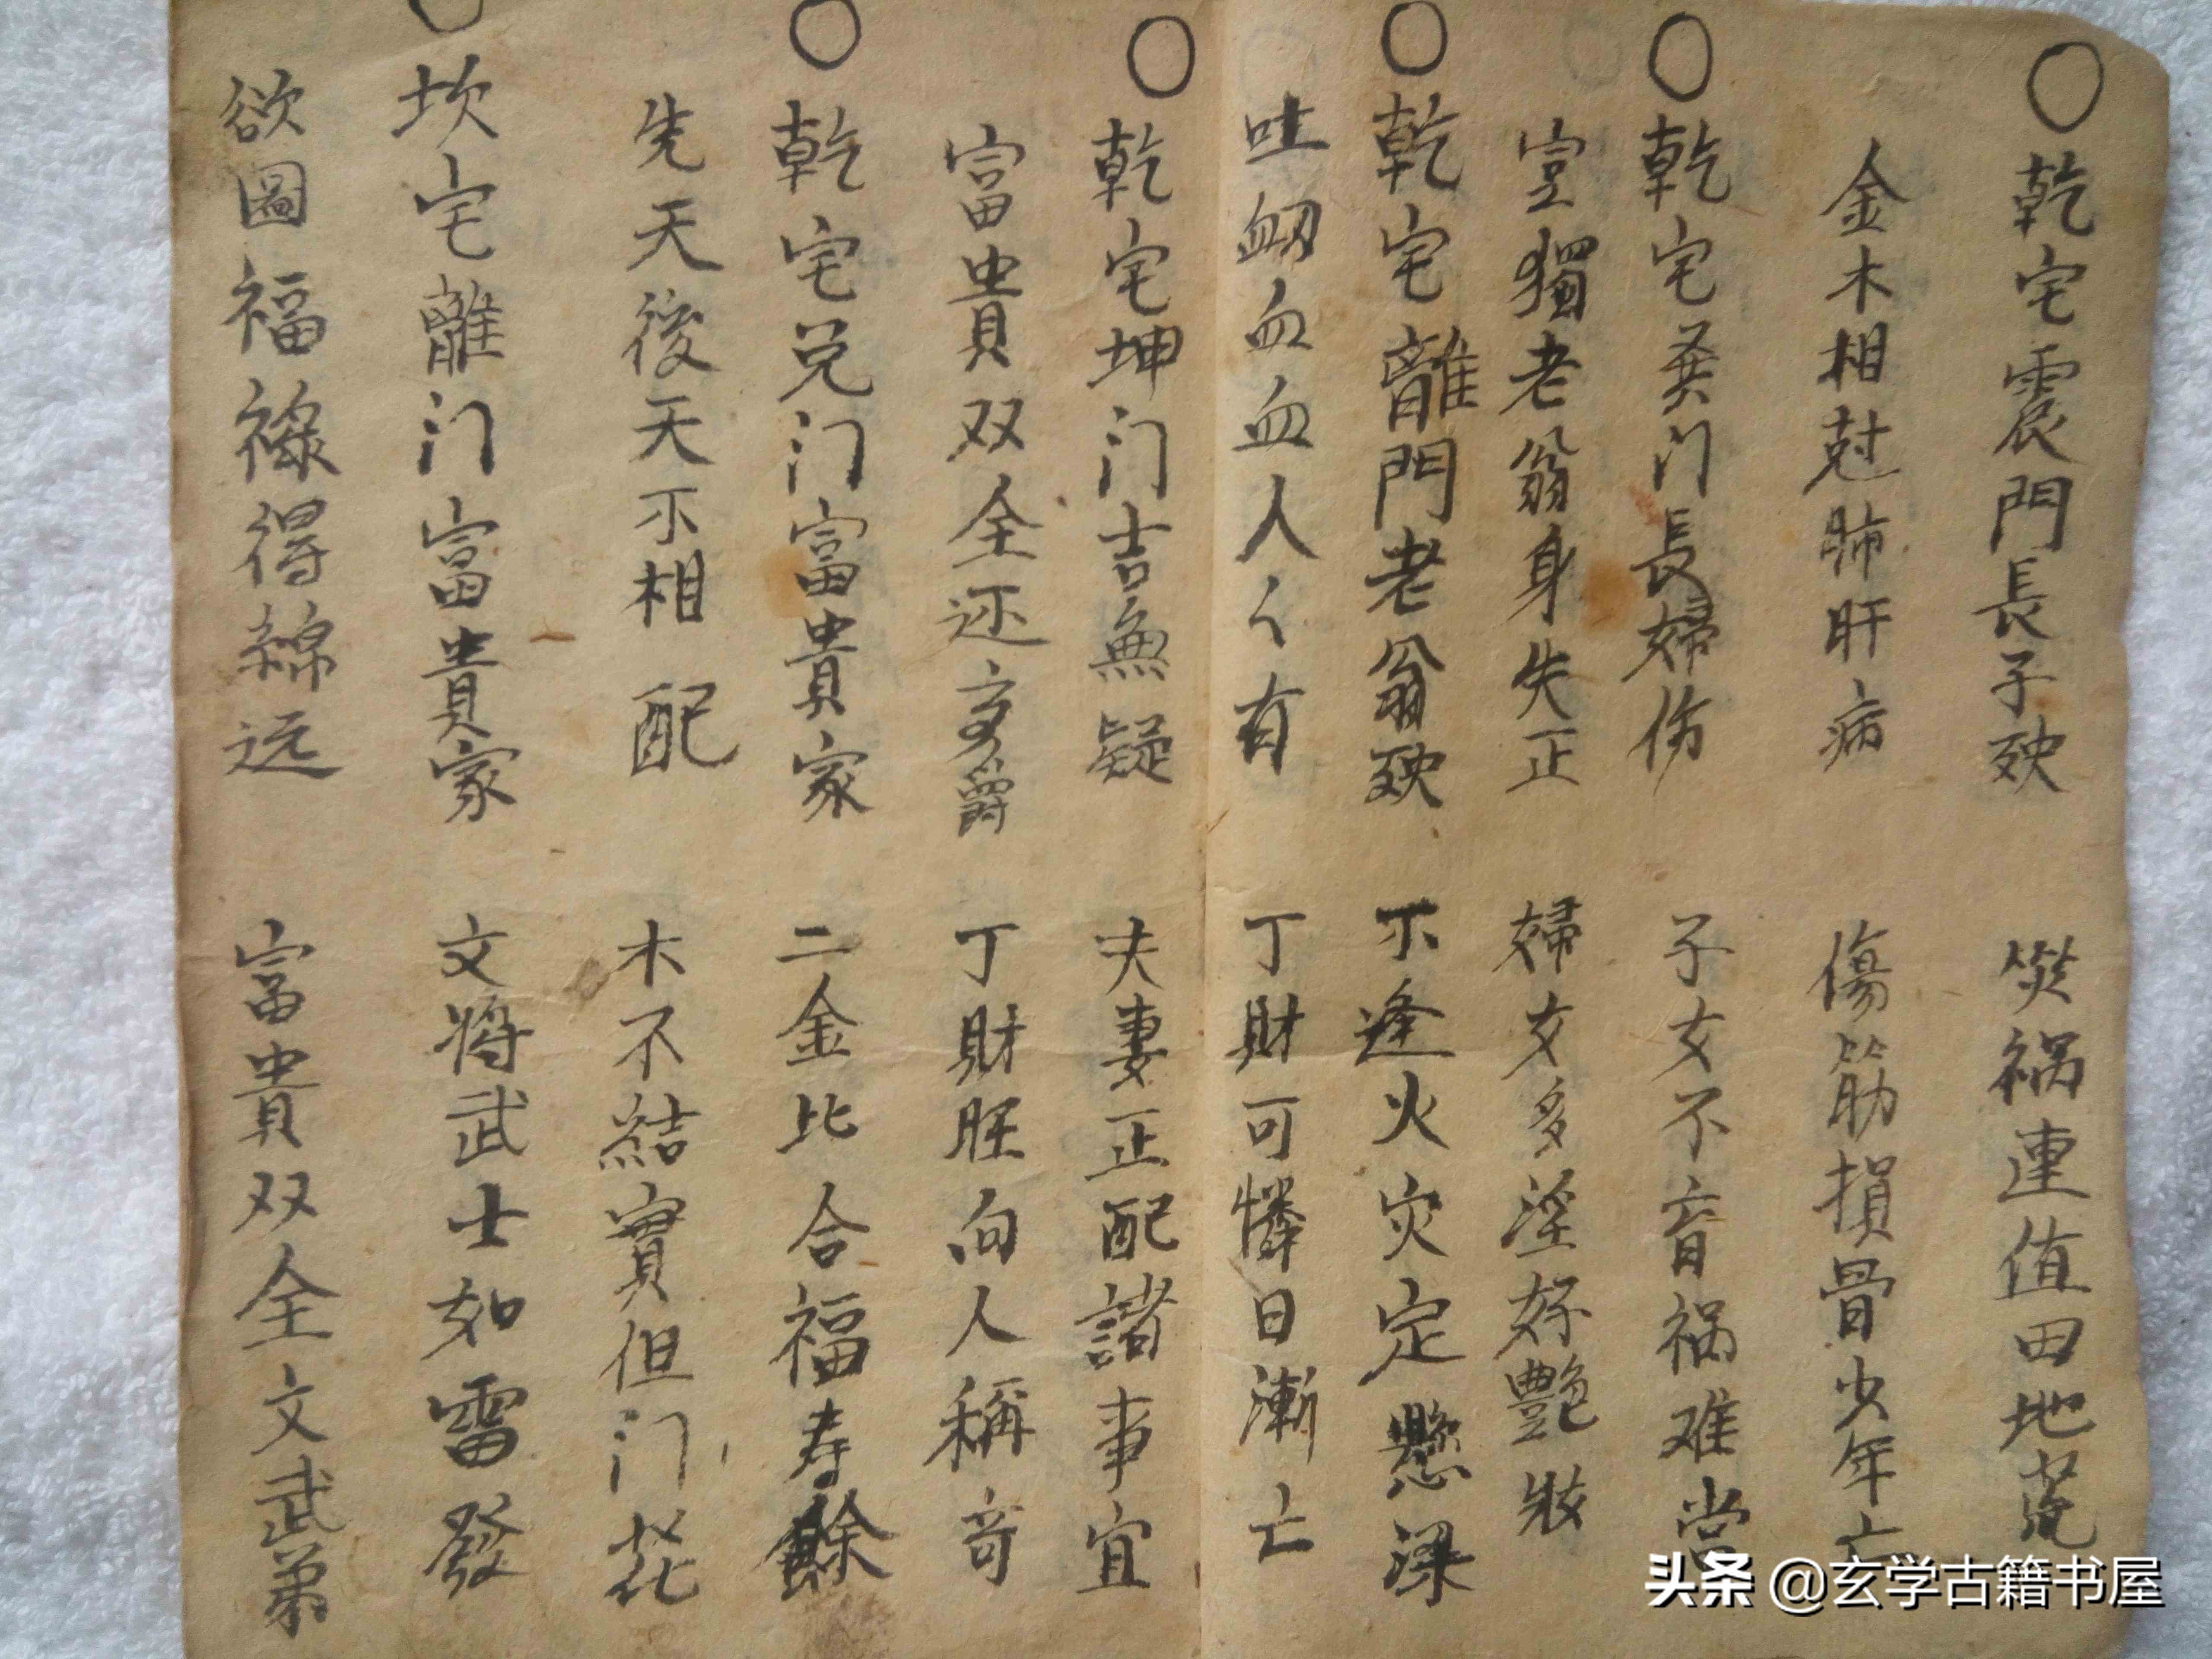 ○乾宅震門長子殃 災禍連值田地荒
金木相尅肺肝病 傷筋損骨少年亡
○乾宅巽门長婦伤 子女不育祸难当
空獨老翁身失正 婦女多淫好艷妝
○乾宅離門老翁殃 不逢火灾定懸梁
吐衂血血人々有 丁財可憐日漸亡
○乾宅坤门吉無疑 夫妻正配諸事宜
富貴双全还多爵 丁財旺向人稱奇
○乾宅兑门富貴家 二金比合福寿餘
先天後天不相配 木不結實但门花
○坎宅離门富貴家 文將武士如雷發
欲圖福祿得綿远 富貴双全文武弟
头条 @玄学古籍书屋